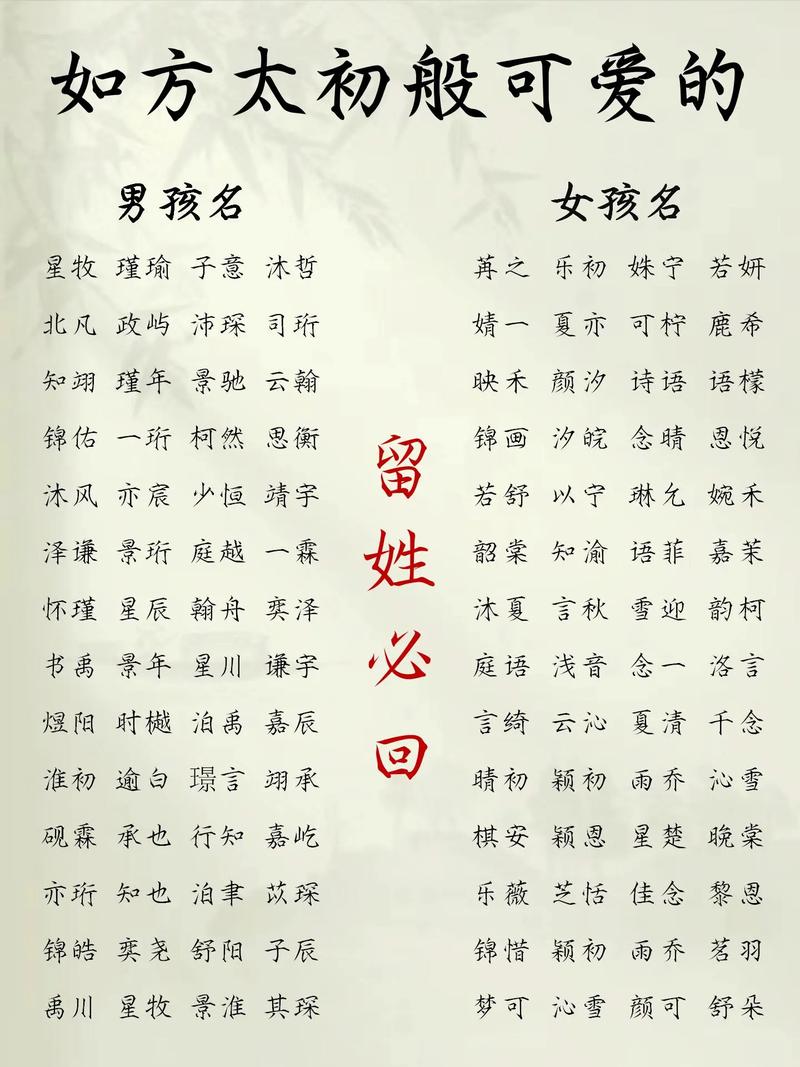 如方太初般可爱的
男孩名
星牧 瑾瑜 子意 沐哲
北凡 政屿 沛琛 司珩
知翊 瑾年 景驰 云翰
锦佑 一珩 柯然 思衡
沐风 亦宸 少恒 靖宇
泽谦 景珩 庭越 一霖
怀瑾 星辰 翰舟 奕泽
书禹 景年 星川 谦宇
煜阳 时樾 泊禹 嘉辰
淮初 逾白 璟言 翊承
砚霖 承也 行知 嘉屹
亦珩 知也 泊聿 苡琛
锦皓 奕尧 舒阳 子辰
禹川 星牧 景淮 其琛
留姓必回
女孩名
苒之 乐初 姝宁 若妍
婧一 夏亦 可柠 鹿希
映禾 颜汐 诗语 语檬
锦画 汐皖 念晴 恩悦
若舒 以宁 琳允 婉禾
韶棠 知渝 语菲 嘉茉
沐夏 言秋 雪迎 韵柯
庭语 浅音 念一 洛言
言绮 云沁 夏清 千念
晴初 颖初 雨乔 沁雪
棋安 颖恩 星楚 晚棠
乐薇 芝恬 佳念 黎恩
锦惜 颖初 雨乔 茗羽
梦可 沁雪 颜可 舒朵